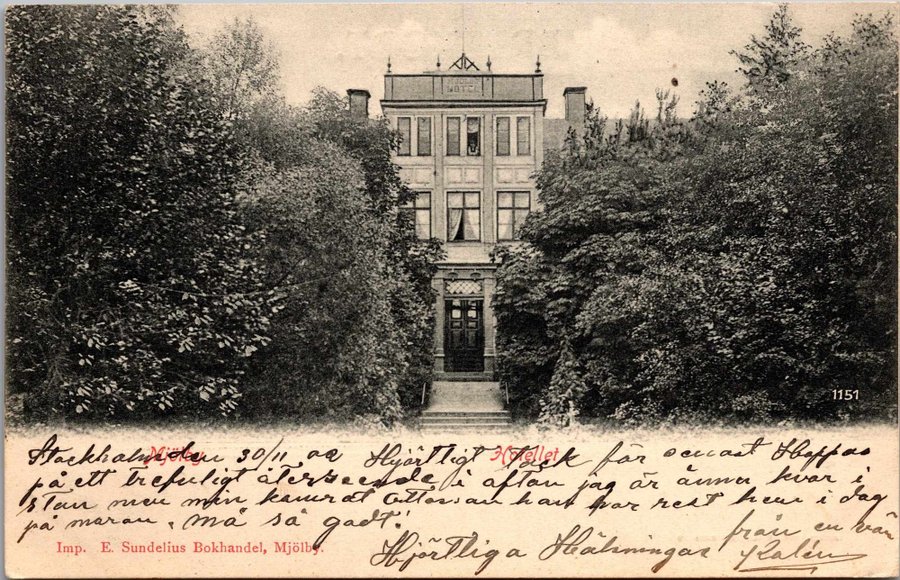 HOTEL
1151
Mjölby. Hotellet
Stockholm den 30/11 02 Hjärtligt Tack för senast Hoppas
på ett trefligt återseende i afton jag är ännu kvar i
stan men min kamrat Ottosson han har rest hem i dag
på moran. må så godt!
från en vän
Hjärtliga Hälsningar Kalén
Imp. E. Sundelius Bokhandel, Mjölby.